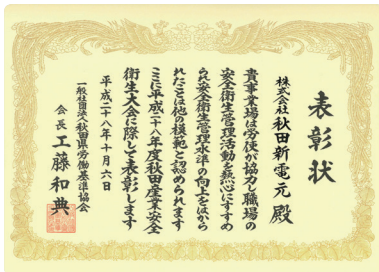 表彰状
株式会社秋田新電元殿
貴事業場は労使が協力し職場の
安全衛生管理活動を熱心にすすめ
られ安全衛生管理水準の向上をはから
れたことは他の模範と認められます
ここに平成二十八年度秋田産業安全
衛生大会に際して表彰します
平成二十八年十月六日
一般社団法人秋田県労働基準協会
会長工藤和典